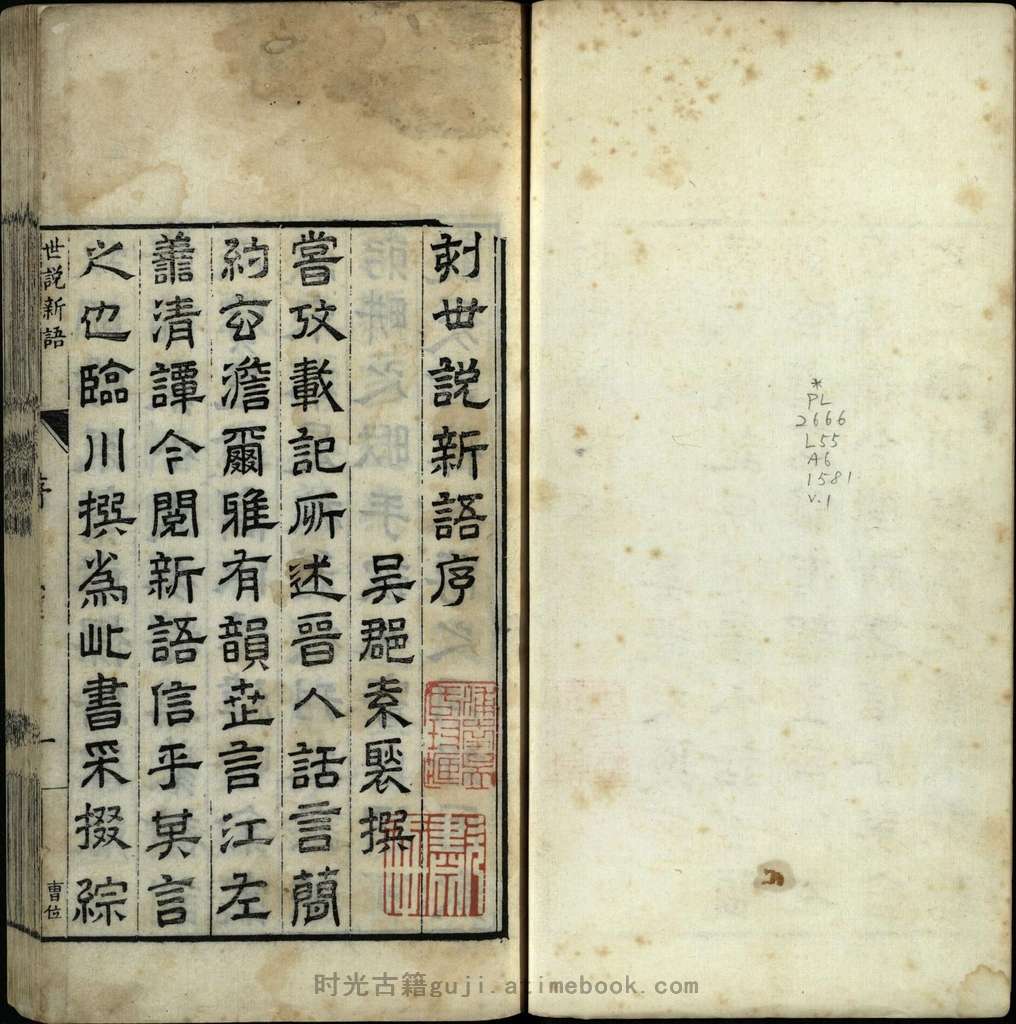 刻世說新語序
吳郡袁褧撰
嘗攷載記所述晉人話言簡
約玄澹爾雅有韻世言江左
善清譚今閱新語信乎其言
之也臨川撰爲此書采掇綜
世說新語
序
一
曹位
*
PL
2666
L55
A6
1581
v.1
时光古籍guji.artimebook.com